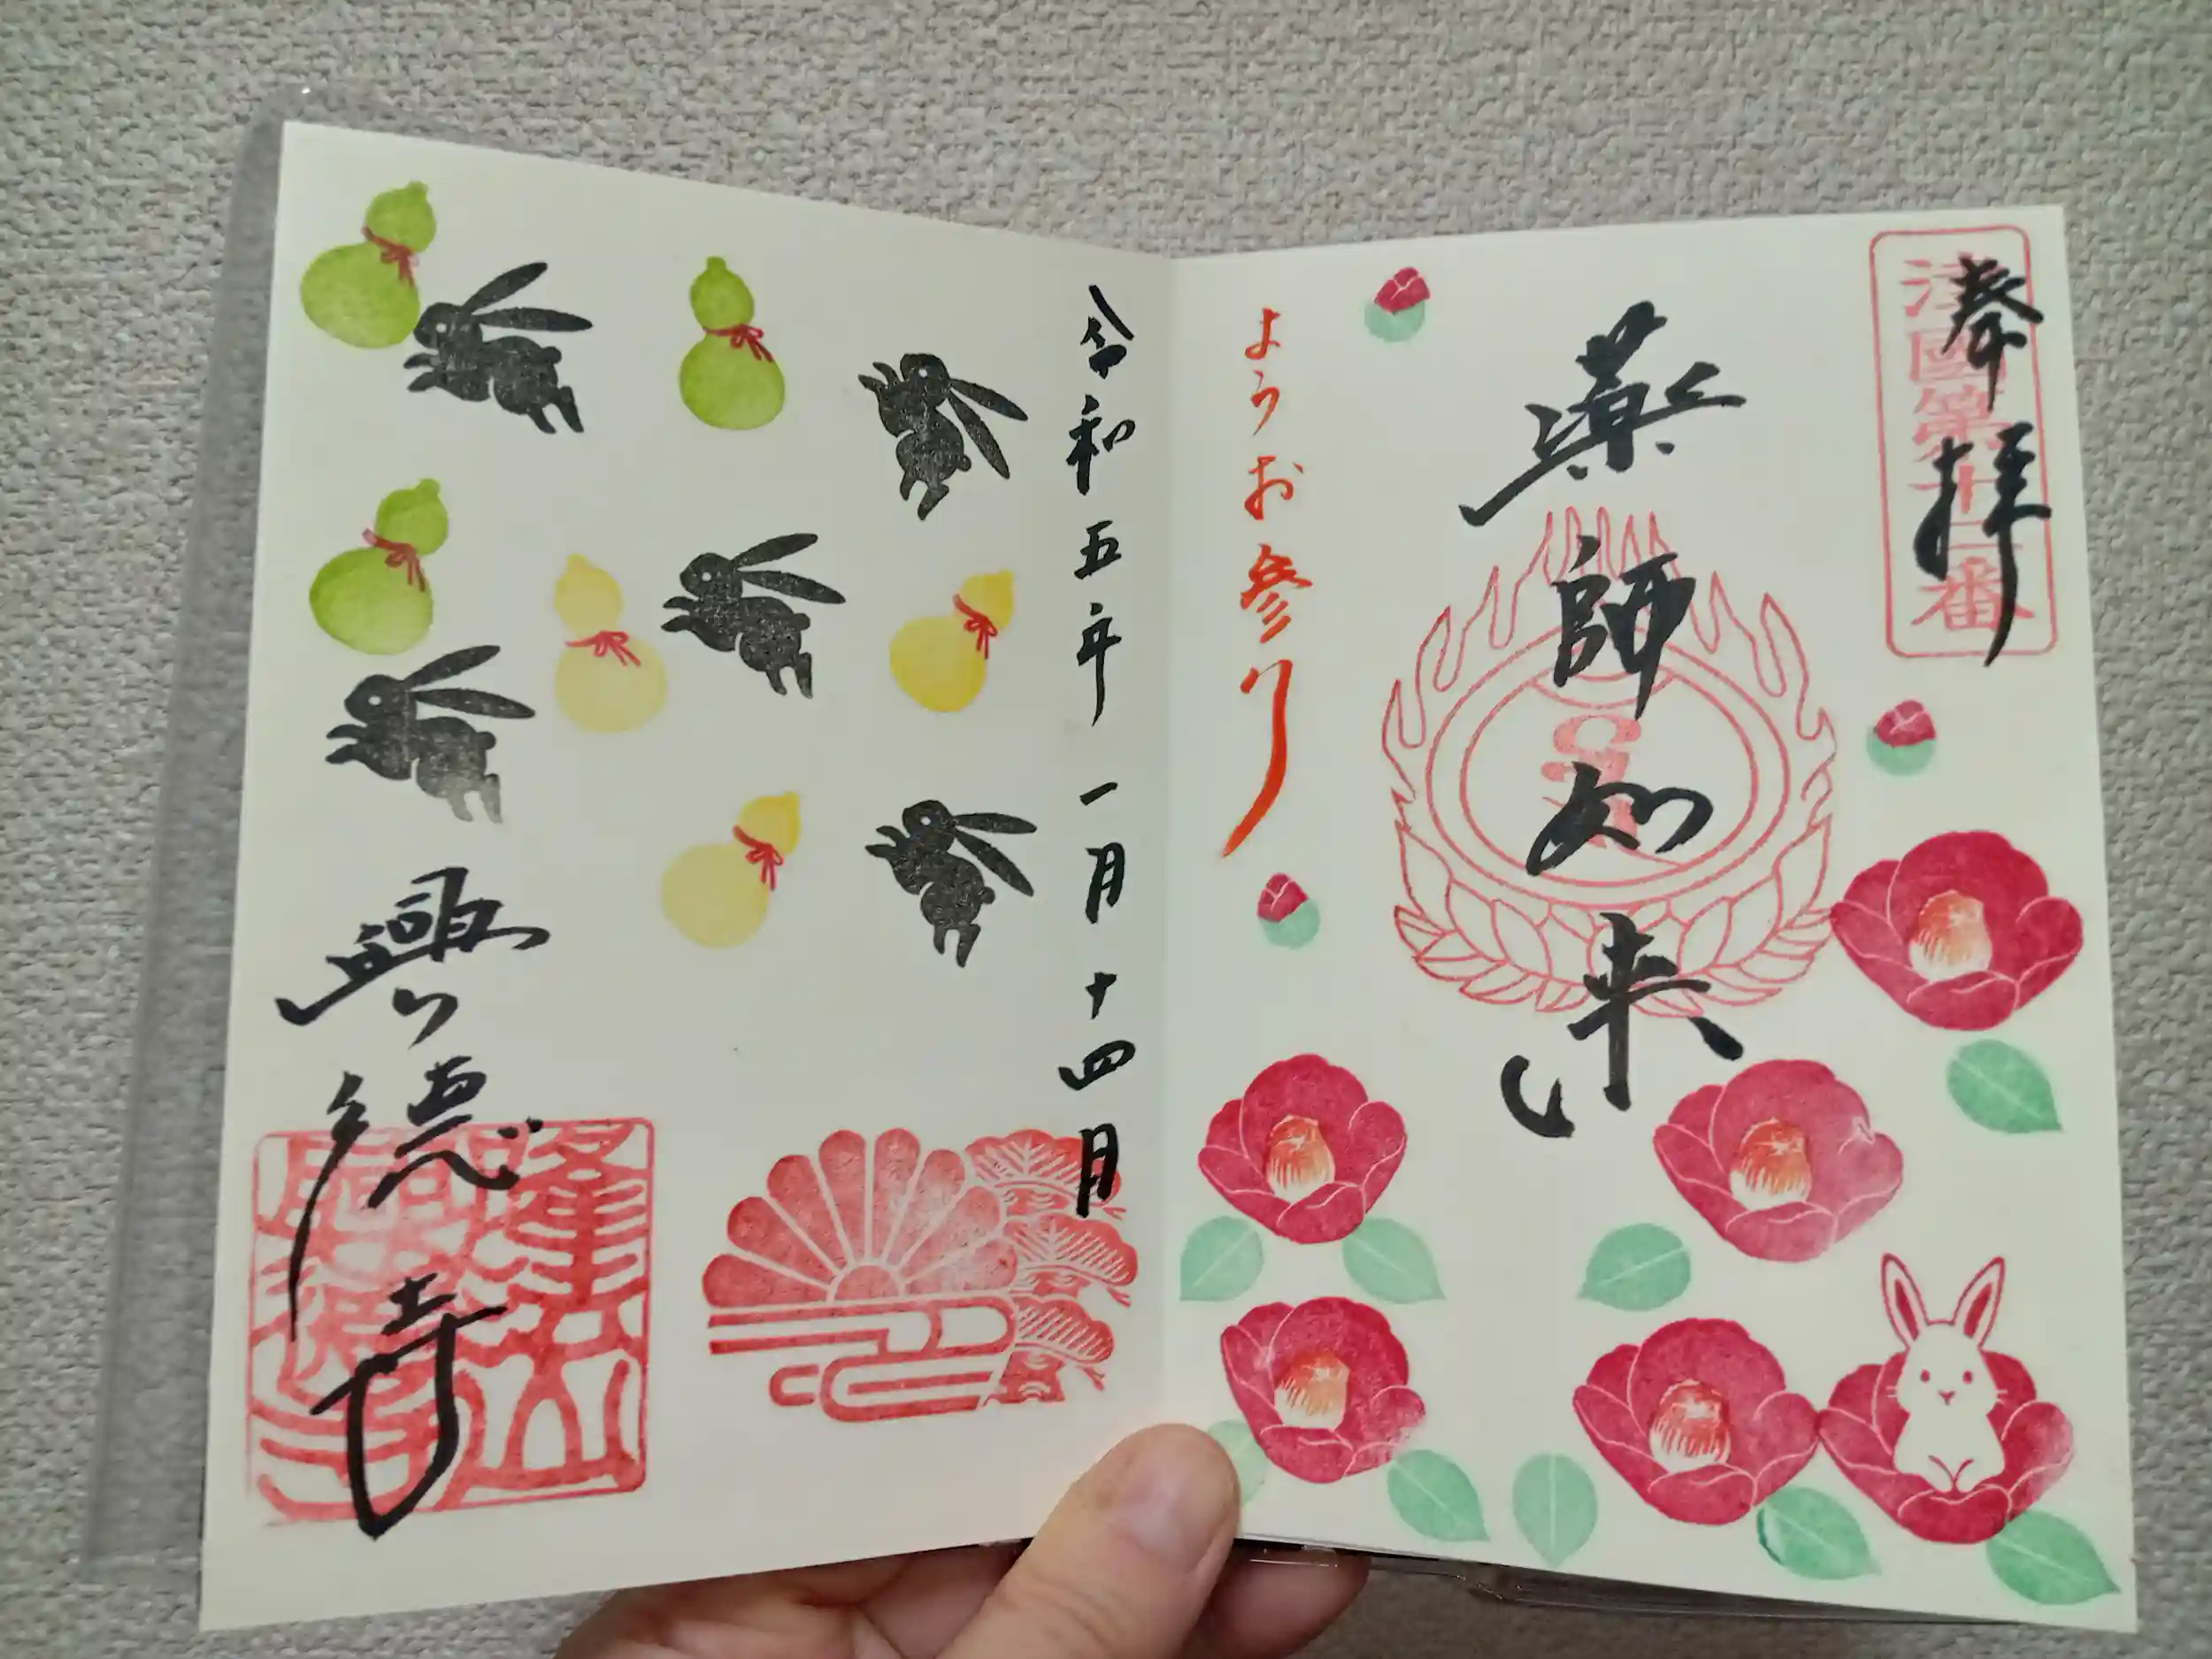 奉拝
津國第十二番
薬師如来
ようお参り
令和五年 一月 十四日
興徳寺